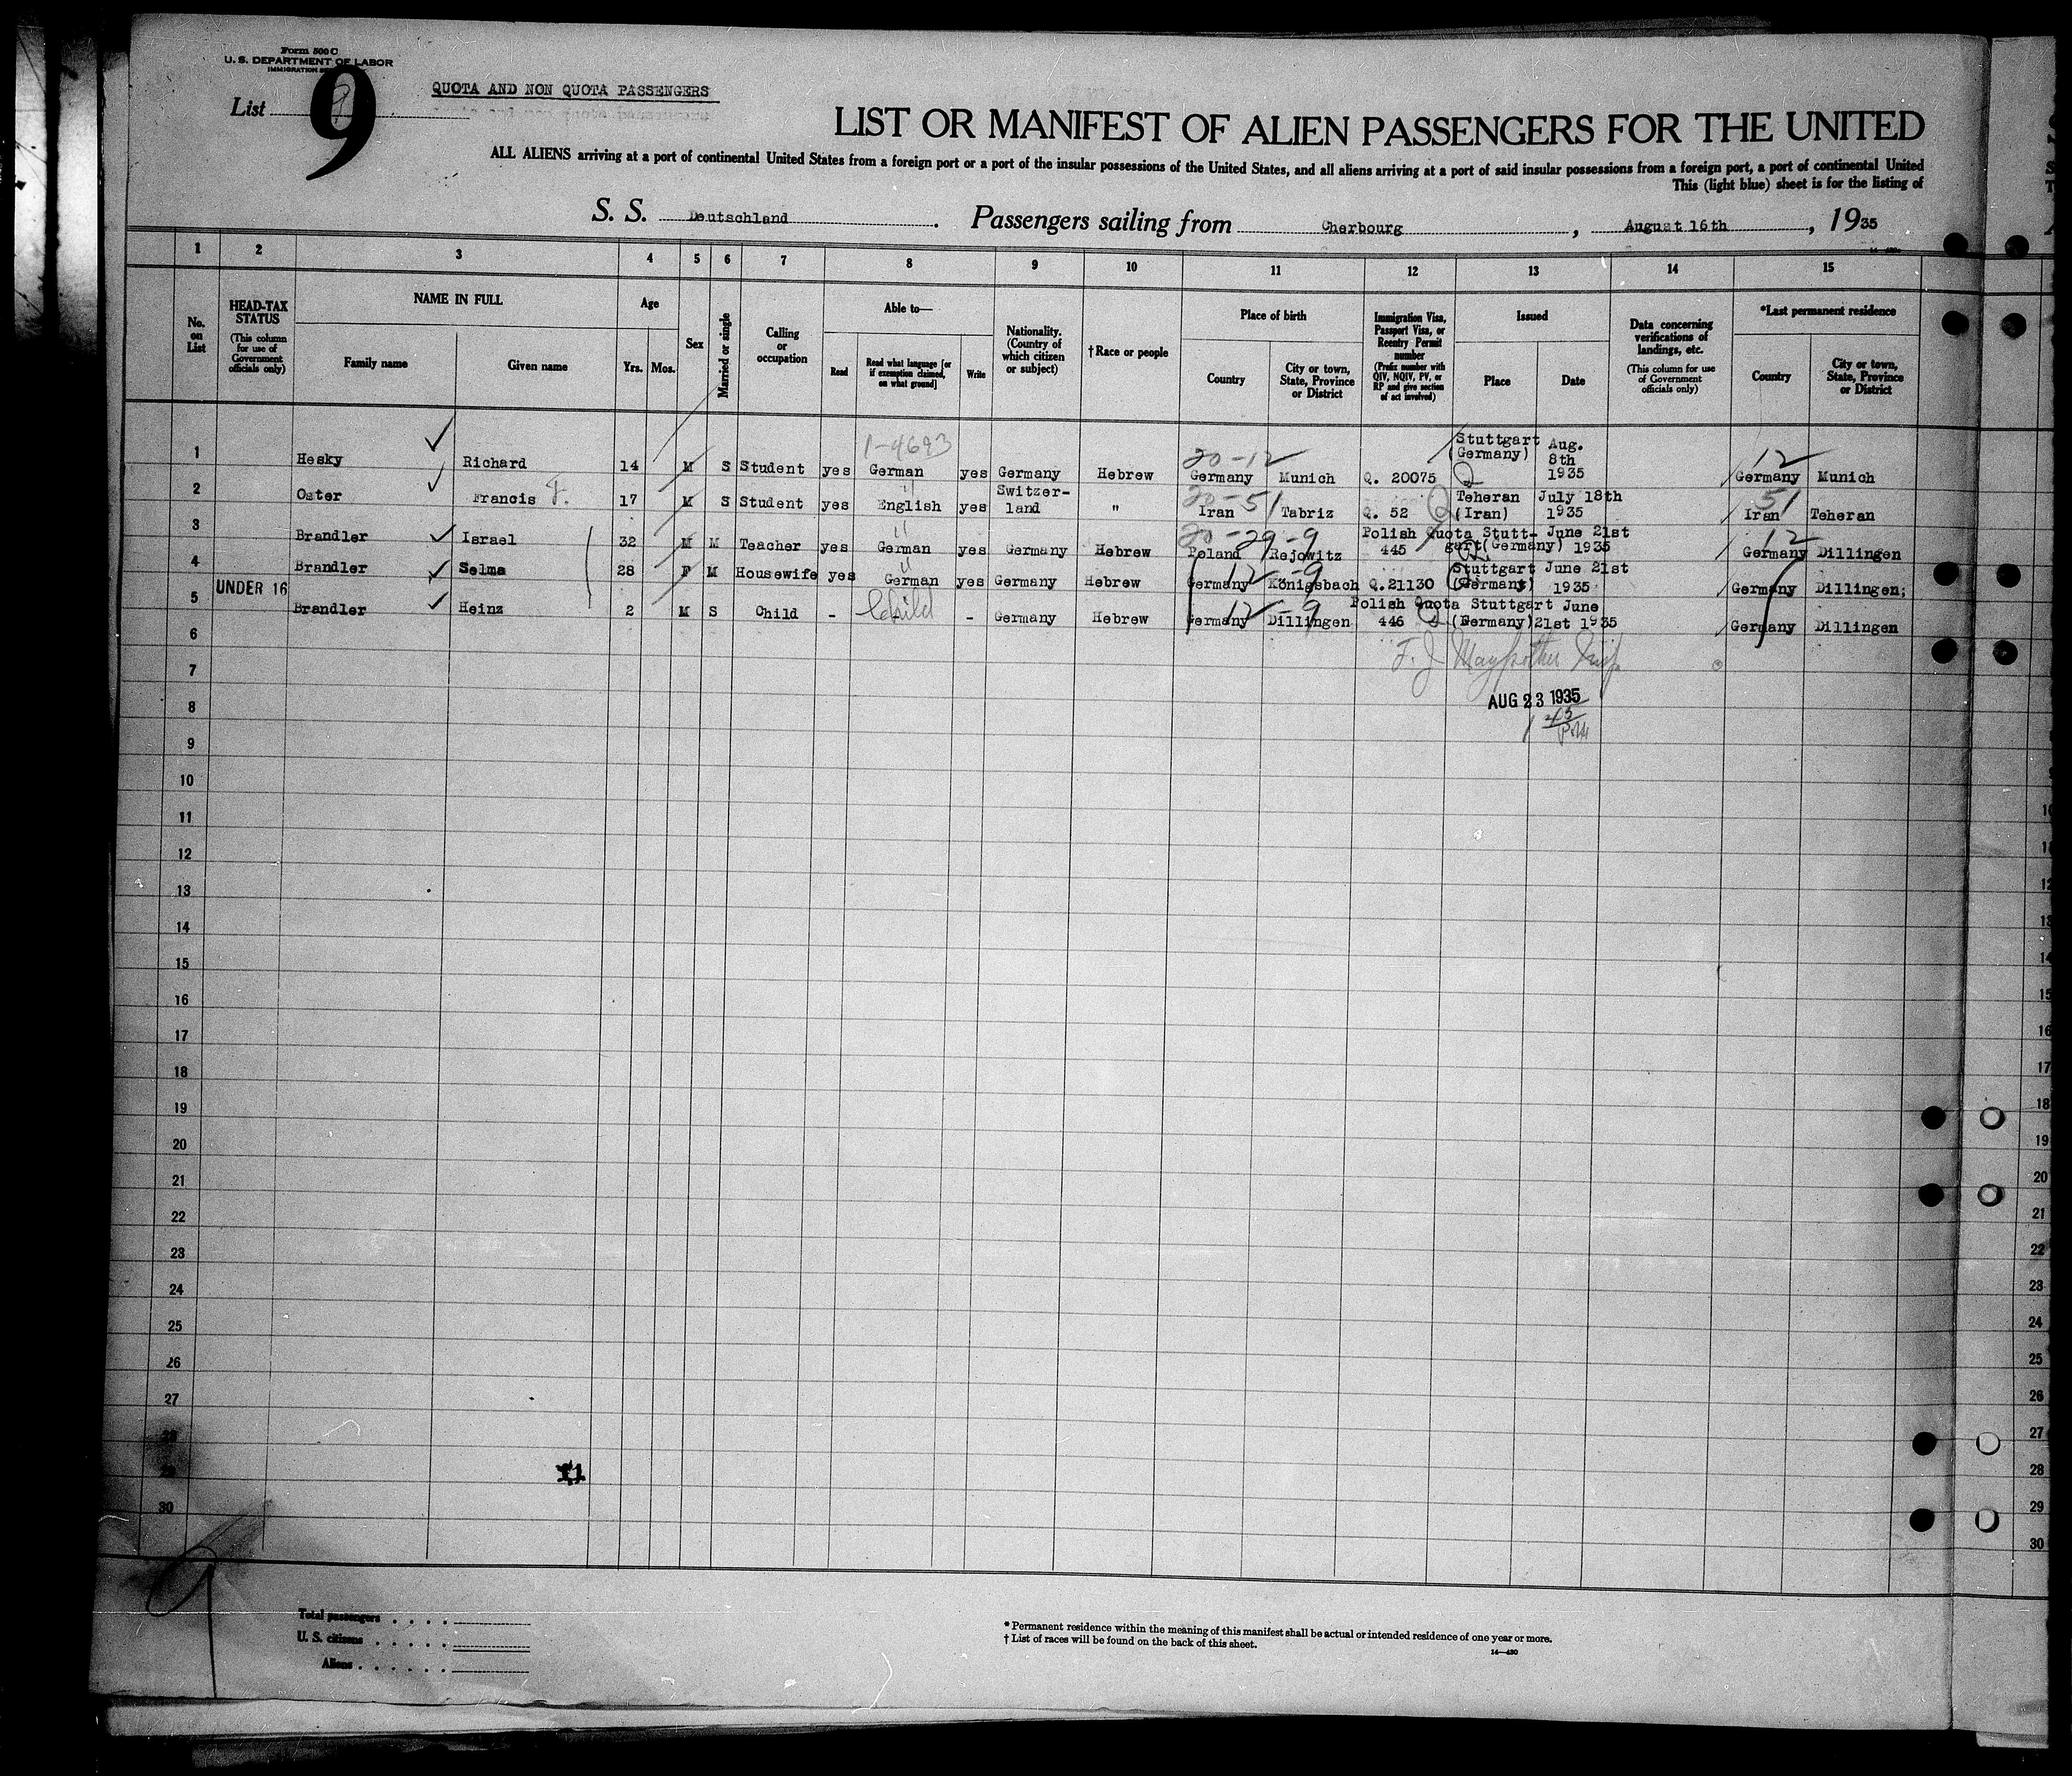 Form 500 C
U. S. DEPARTMENT OF LABOR
IMMIGRATION
List 9
QUOTA AND NON QUOTA PASSENGERS
LIST OR MANIFEST OF ALIEN PASSENGERS FOR THE UNITED
ALL ALIENS arriving at a port of continental United States from a foreign port or a port of the insular possessions of the United States, and all aliens arriving at a port of said insular possessions from a foreign port, a port of continental United
This (light blue) sheet is for the listing of
S. S. Deutschland. Passengers sailing from Cherbourg, August 16th, 1935
1 2 3 4 5 6 7 8 9 10 11 12 13 14 15
No. on List
HEAD-TAX STATUS (This column for use of Government officials only)
NAME IN FULL
Family name Given name
Age
Yrs. Mos.
Sex
Married or single
Calling or occupation
Able to—
Read Read what language [or if exemption claimed, on what ground] Write
Nationality. (Country of which citizen or subject)
†Race or people
Place of birth
Country City or town, State, Province or District
Immigration Visa, Passport Visa, or Reentry Permit number (Prefix number with QIV, NQIV, PV, or RP and give section of act involved)
Issued
Place Date
Data concerning verifications of landings, etc. (This column for use of Government officials only)
*Last permanent residence
Country City or town, State, Province or District
1-4693
20-12 12
1 Hesky Richard 14 M S Student yes German yes Germany Hebrew Germany Munich Q. 20075 Stuttgart (Germany) Aug. 8th 1935 Germany Munich
20-51 51
2 Oster Francis J. 17 M S Student yes English yes Switzer-land " Iran Tabriz Q. 52 Teheran (Iran) July 18th 1935 Iran Teheran
20-29-9 12
3 Brandler Israel 32 M M Teacher yes German yes Germany Hebrew Poland Rejowitz Polish Quota 445 Stutt-gart(Germany) June 21st 1935 Germany Dillingen
12-9
4 Brandler Selma 28 F M Housewife yes German yes Germany Hebrew Germany Königsbach Q.21130 Stuttgart (Germany) June 21st 1935 Germany Dillingen;
12-9
5 UNDER 16 Brandler Heinz 2 M S Child - Child - Germany Hebrew Germany Dillingen Polish Quota 446 Stuttgart (Germany) June 21st 1935 Germany Dillingen
6
7
AUG 23 1935
8
9
10
11
12
13
14
15
16
17
18
19
20
21
22
23
24
25
26
27
28
29
30
9
Total passengers
U. S. citizens
Aliens
* Permanent residence within the meaning of this manifest shall be actual or intended residence of one year or more.
† List of races will be found on the back of this sheet.
14—430